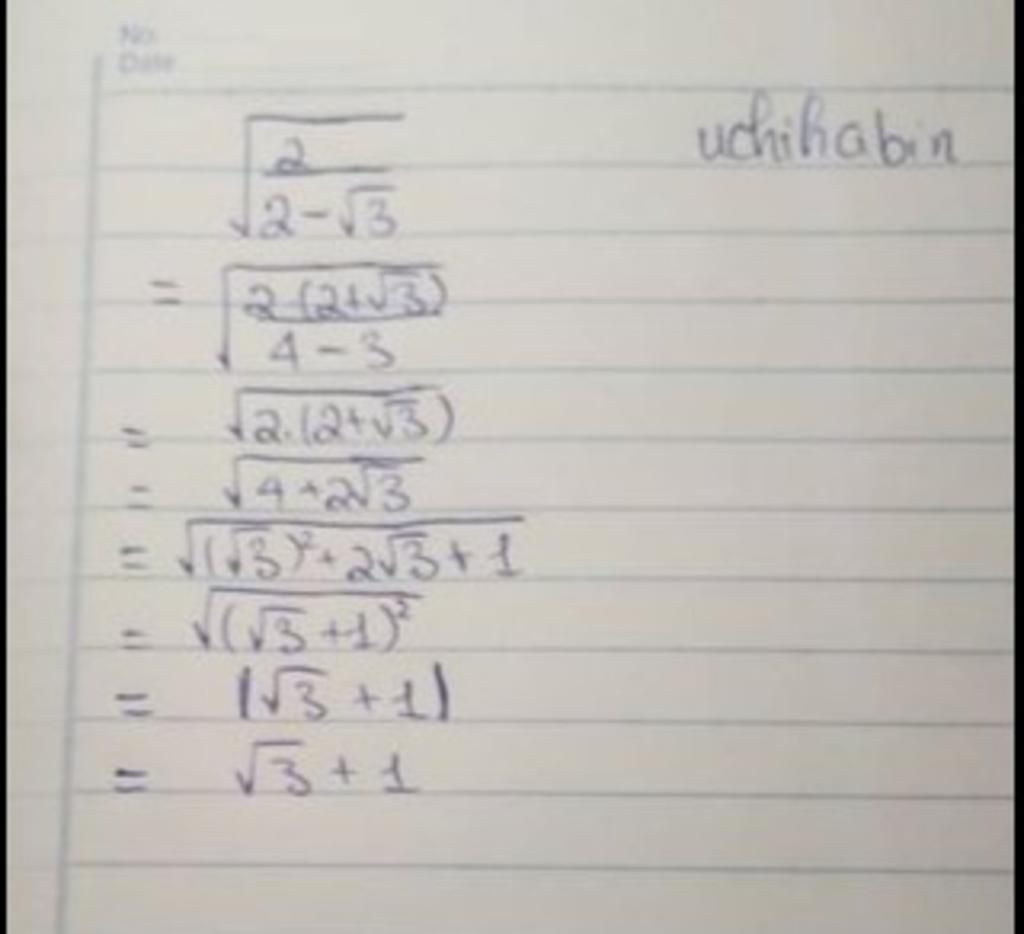 No.
Date
uchihabin
√(2/(2-√3))
= √(2.(2+√3)/(4-3))
= √(2.(2+√3))
= √(4+2√3)
= √((√3)²+2√3+1)
= √((√3+1)²)
= |√3+1|
= √3+1